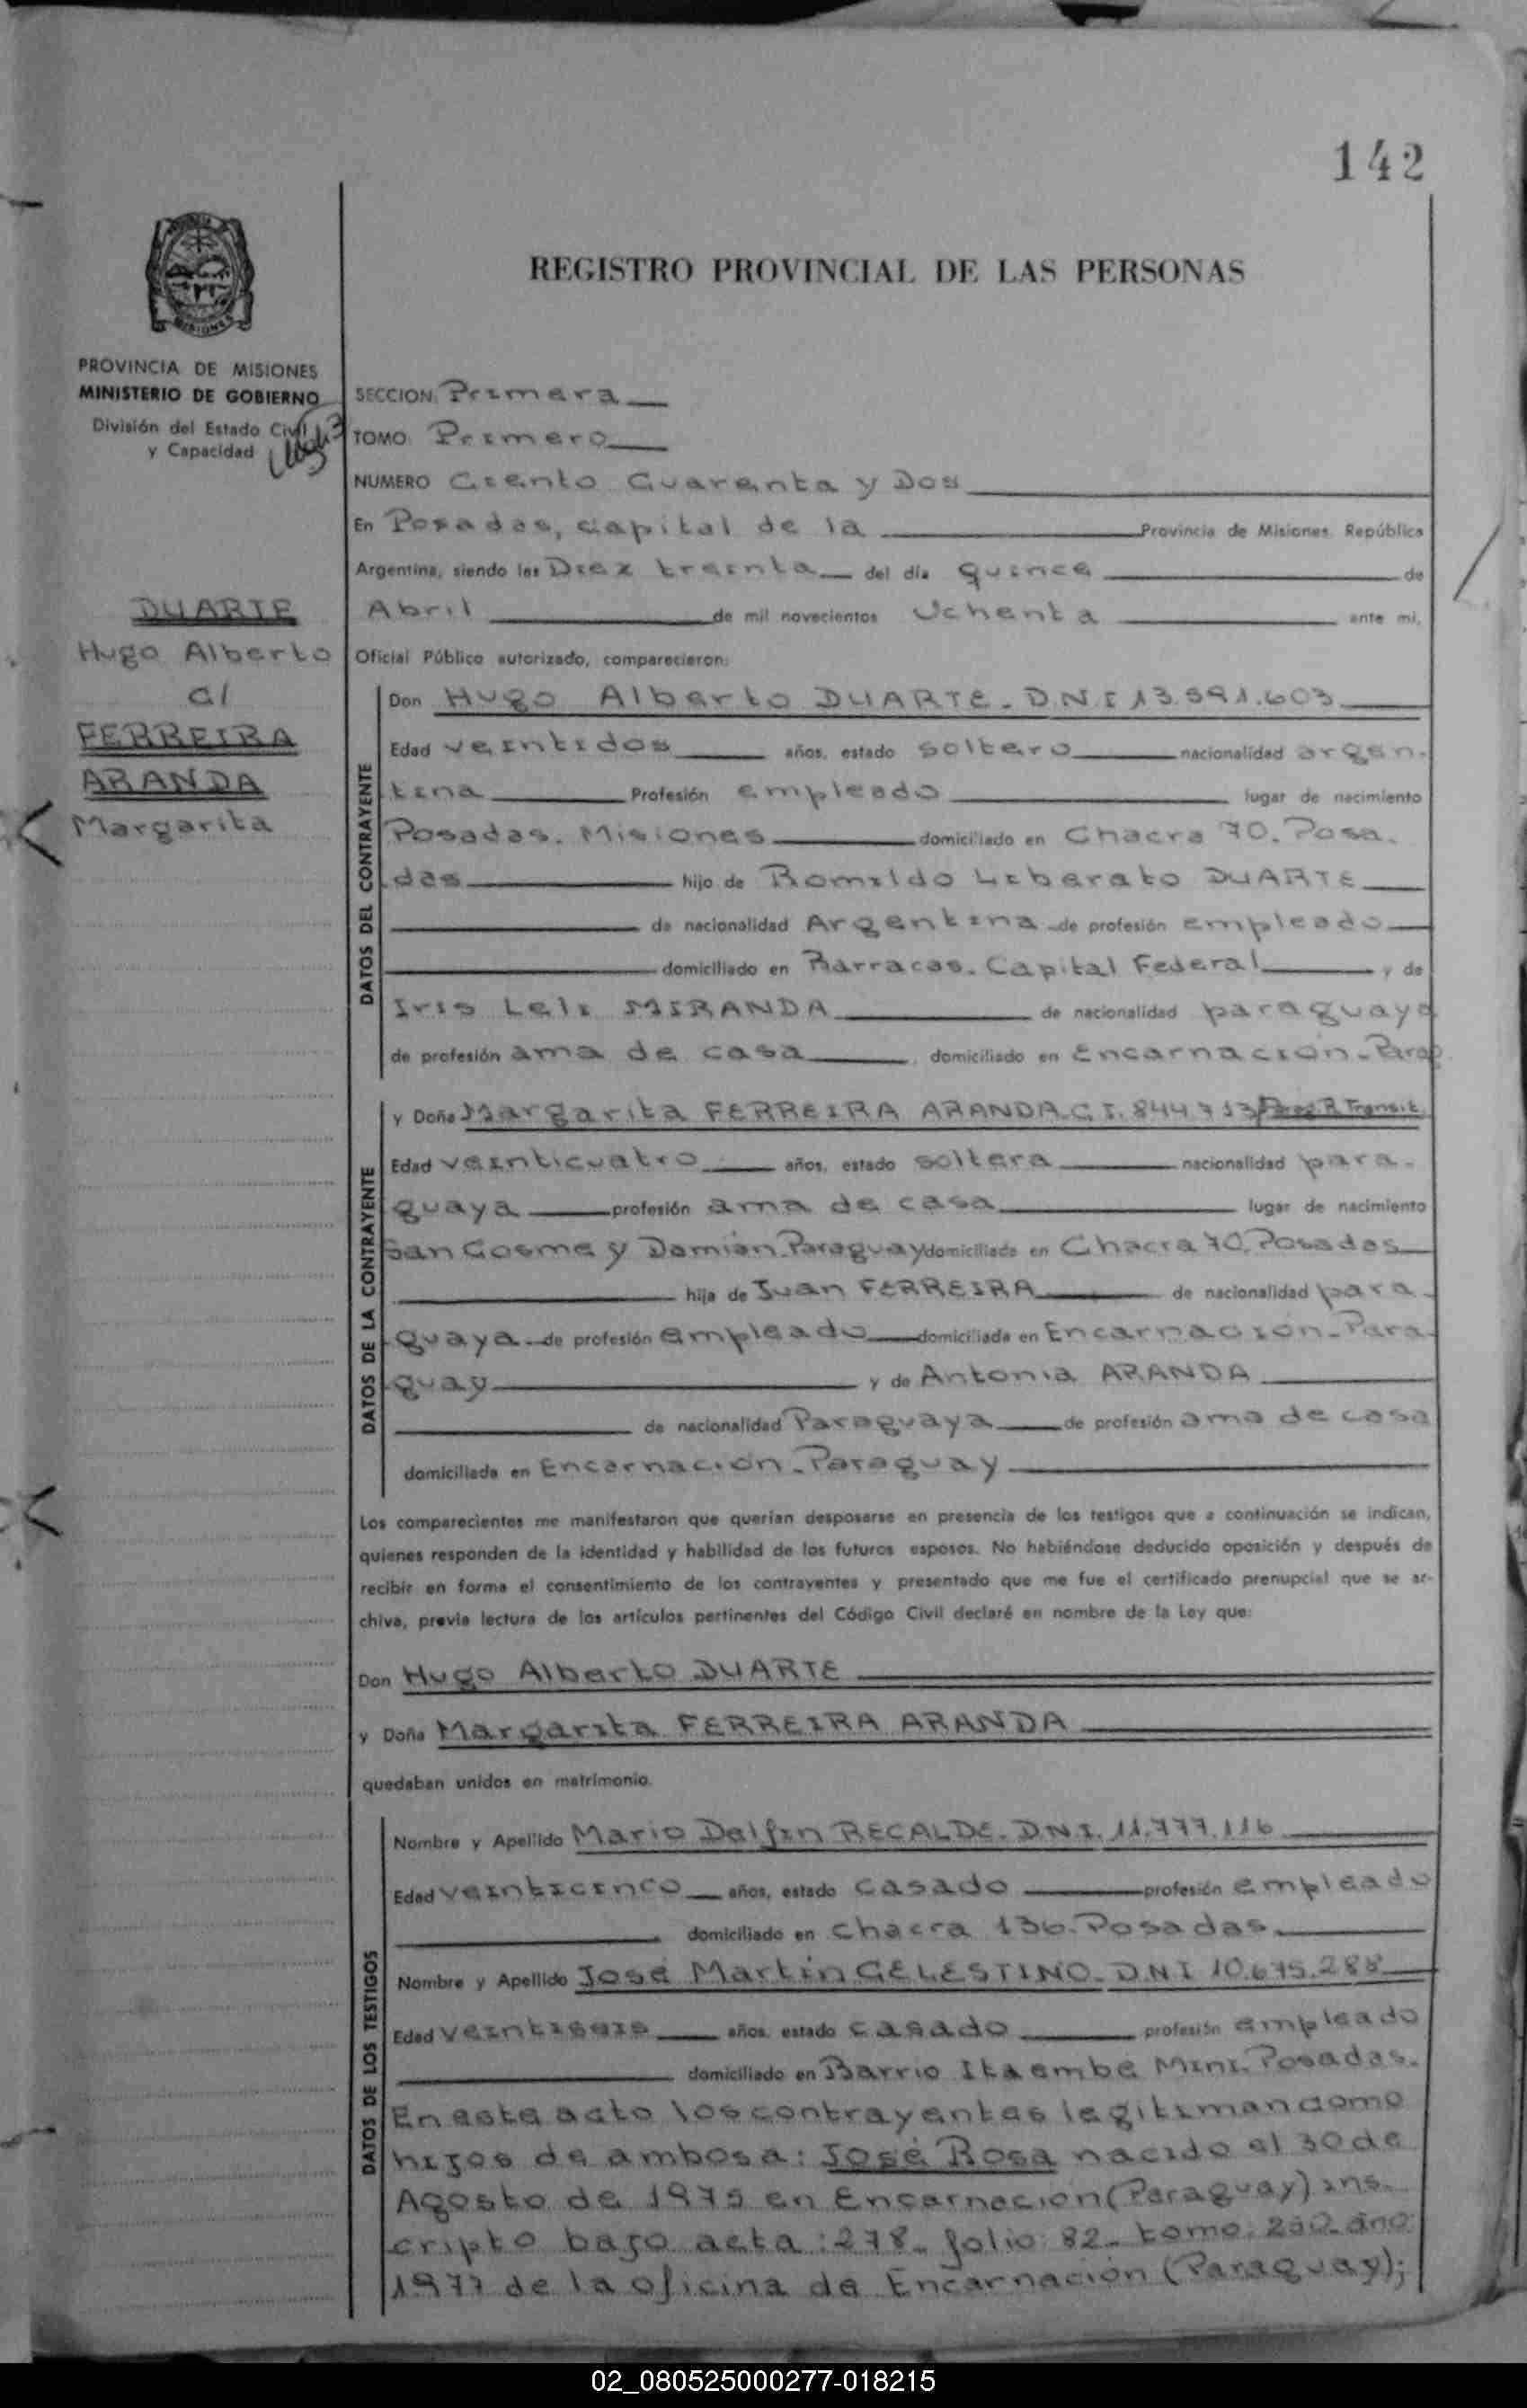 142
REGISTRO PROVINCIAL DE LAS PERSONAS
MISIONES
PROVINCIA DE MISIONES
MINISTERIO DE GOBIERNO
División del Estado Civil
y Capacidad
SECCION: Primera
TOMO: Primero
NUMERO Ciento Cuarenta y Dos
En Posadas, capital de la Provincia de Misiones. República
Argentina, siendo las Diez treinta del día quince de
Abril de mil novecientos Ochenta ante mi,
Oficial Público autorizado, comparecieron:
DUARTE
Hugo Alberto
c/
FERREIRA
ARANDA
Margarita
DATOS DEL CONTRAYENTE
Don Hugo Alberto DUARTE. D.N.I 13.591.603
Edad veintidos años, estado soltero nacionalidad argen-
tina Profesión empleado lugar de nacimiento
Posadas. Misiones domiciliado en Chacra 70. Posa-
das hijo de Romildo Liberato DUARTE
de nacionalidad Argentina de profesión empleado
domiciliado en Barracas. Capital Federal y de
Iris Leli MIRANDA de nacionalidad paraguaya
de profesión ama de casa, domiciliado en Encarnación-Parag
DATOS DE LA CONTRAYENTE
y Doña Margarita FERREIRA ARANDA C.I. 844713 R. Transit.
Edad veinticuatro años, estado soltera nacionalidad para-
guaya profesión ama de casa lugar de nacimiento
San Cosme y Damián. Paraguay domiciliada en Chacra 70. Posadas
hija de Juan FERREIRA de nacionalidad para-
guaya de profesión empleado domiciliada en Encarnación-Para-
guay y de Antonia ARANDA
de nacionalidad Paraguaya de profesión ama de casa
domiciliada en Encarnación-Paraguay
Los comparecientes me manifestaron que querían desposarse en presencia de los testigos que a continuación se indican,
quienes responden de la identidad y habilidad de los futuros esposos. No habiéndose deducido oposición y después de
recibir en forma el consentimiento de los contrayentes y presentado que me fue el certificado prenupcial que se ar-
chiva, previa lectura de los artículos pertinentes del Código Civil declaré en nombre de la Ley que:
Don Hugo Alberto DUARTE
y Doña Margarita FERREIRA ARANDA
quedaban unidos en matrimonio.
DATOS DE LOS TESTIGOS
Nombre y Apellido Mario Delfin RECALDE. D.N.I. 11.777.116
Edad veinticinco años, estado casado profesión empleado
domiciliado en chacra 136. Posadas
Nombre y Apellido José Martin CELESTINO. D.N.I 10.675.288
Edad veintiseis años, estado casado profesión empleado
domiciliado en Barrio Itaembe Mini. Posadas.
En este acto los contrayentes legitiman como
hijos de ambosa: José Rosa nacido el 30 de
Agosto de 1975 en Encarnacion (Paraguay) ins-
cripto bajo acta: 278. folio: 82. tomo: 230. año:
1977 de la oficina de Encarnación (Paraguay);
02_080525000277-018215